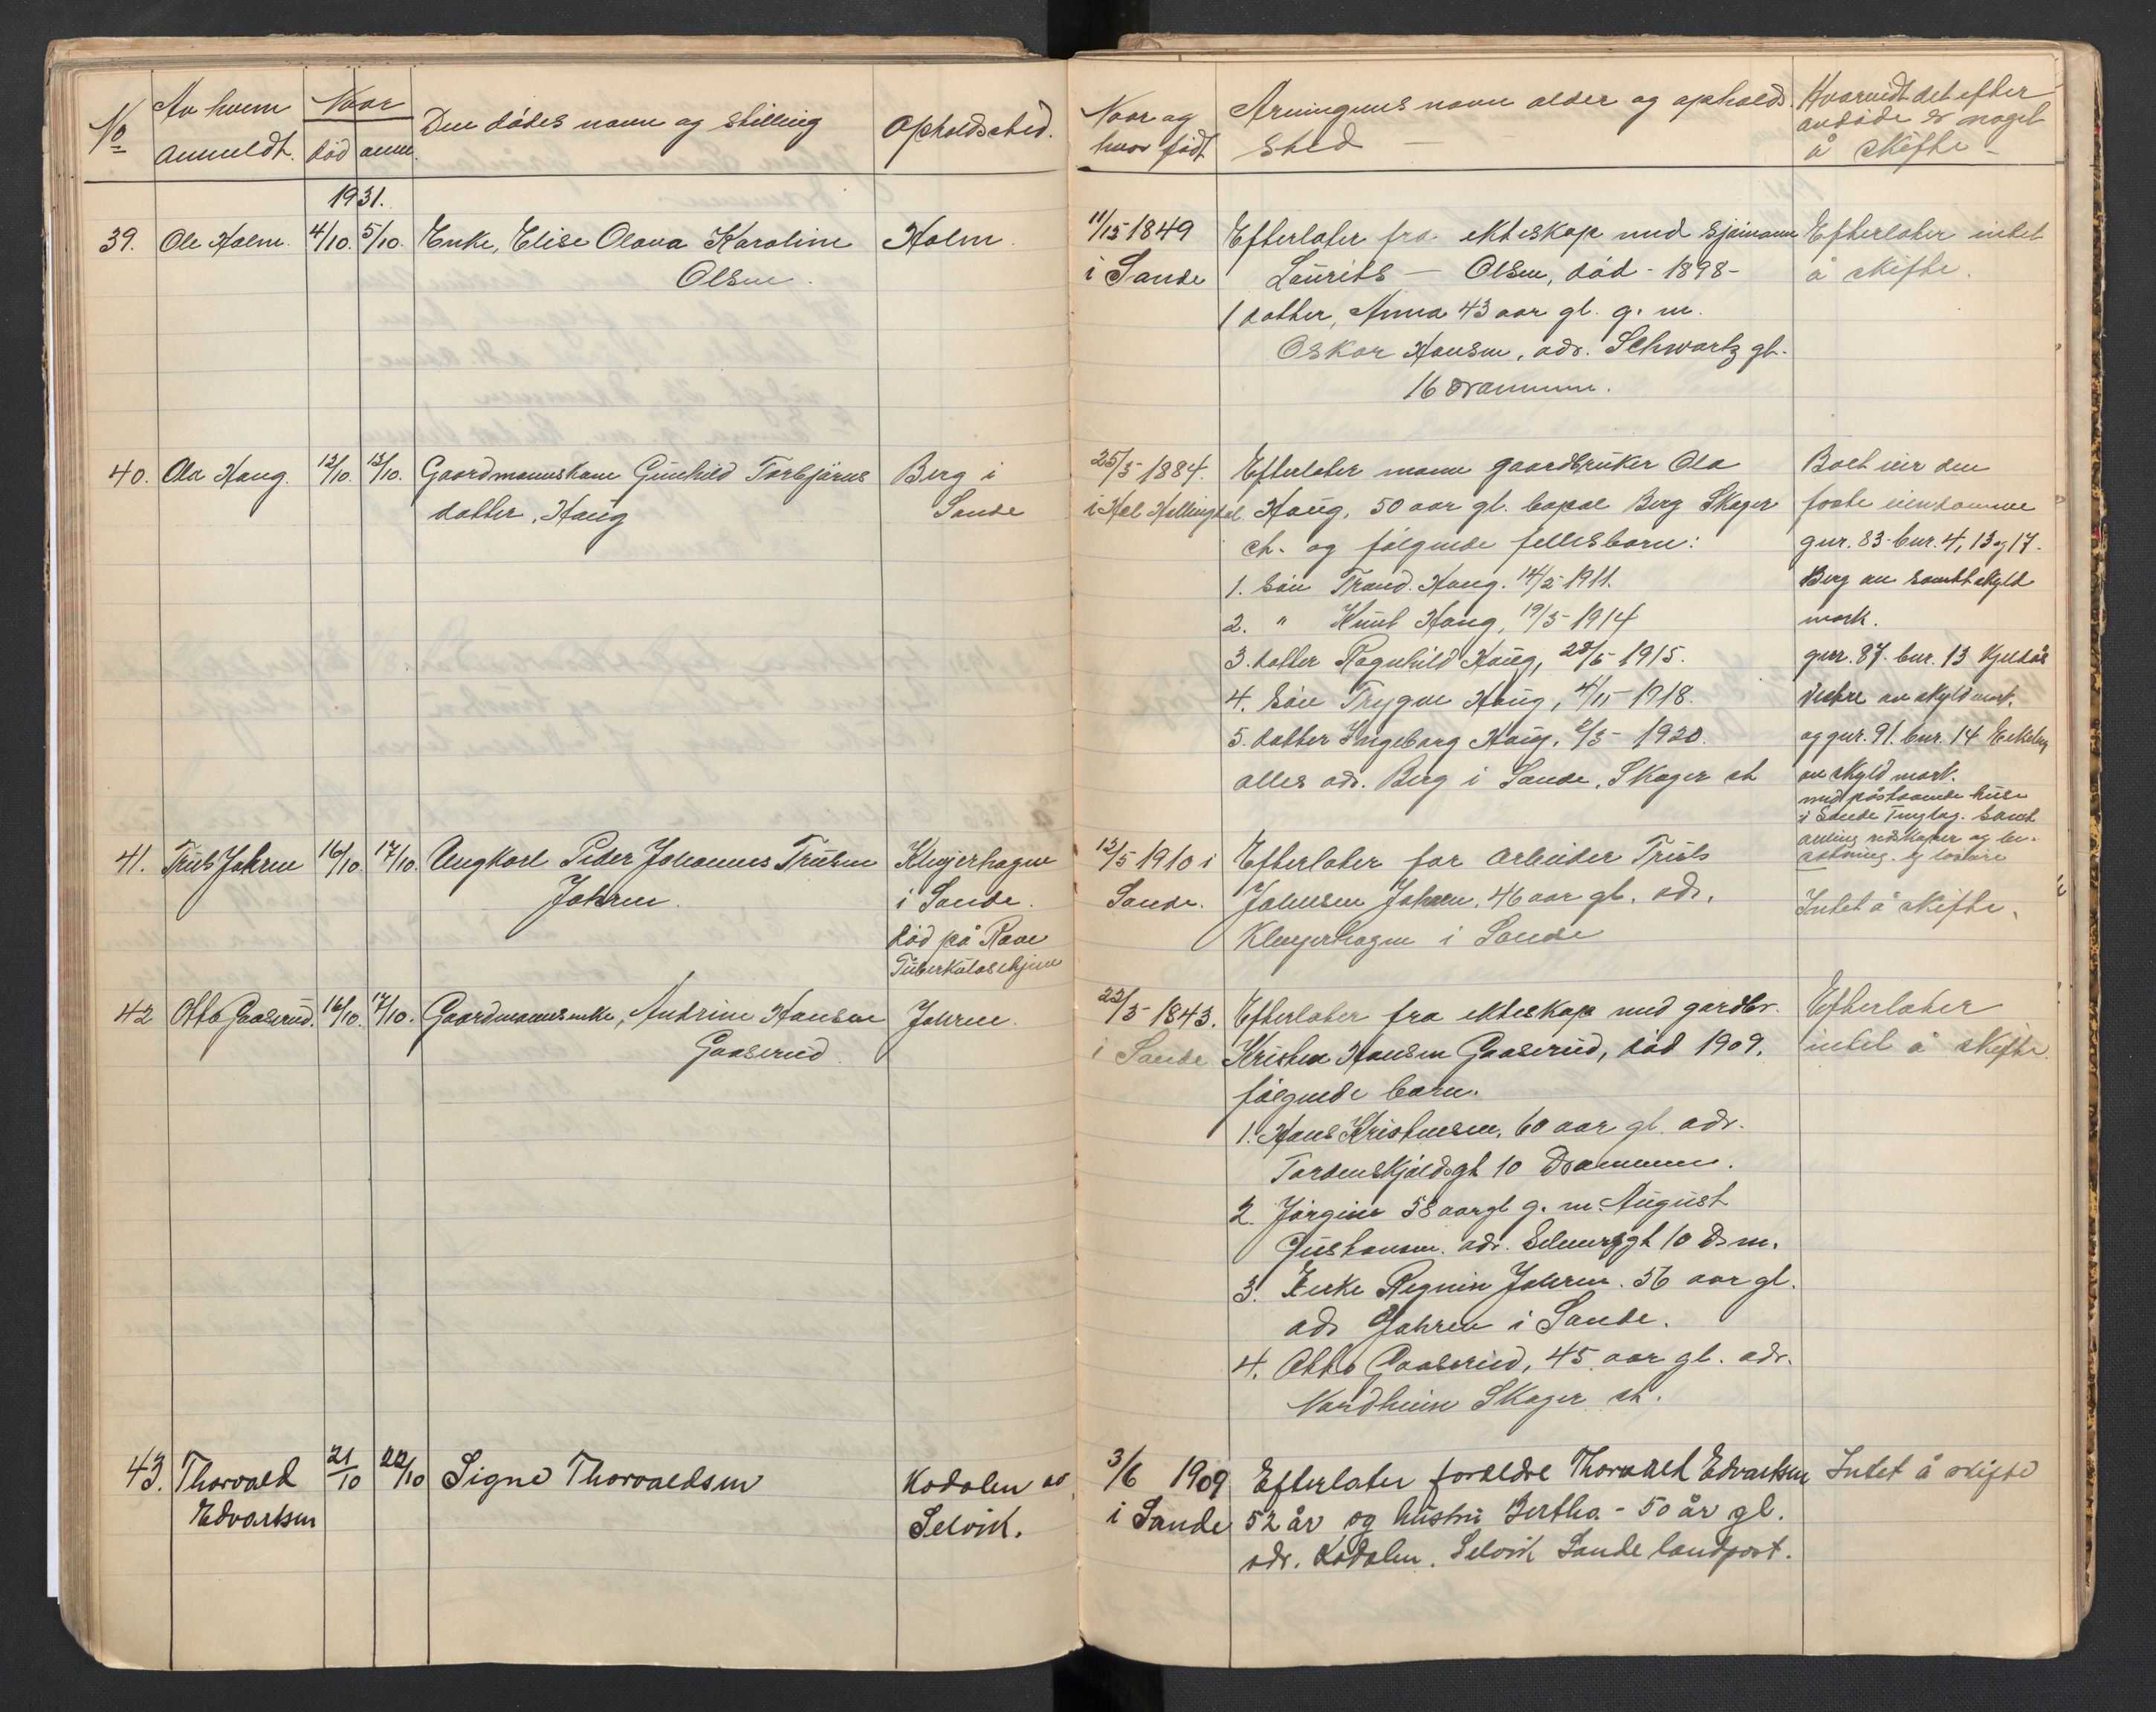 No
Av hvem
anmeldt.
Naar
død
anm.
Den dødes navn og stilling
Opholdssted.
Naar og
hvor født
Arvingens navn alder og opholds
sted
Hvorvidt det efter
avdøde er noget
å skifte
1931.
39. Ole Holm. 4/10. 5/10. Enke, Elise Olava Karoline
Olsen.
Holm.
1849
i Sande
Efterlater fra ekteskap med sjømann
Laurits — Olsen, død - 1898 -
1 datter, Anna 43 aar gl. g. m.
Oskar Hansen, adr. Schwartz gt.
16 Drammen.
Efterlater intet
å skifte.
40. Ola Haug. 12/10. 13/10. Gaardmannskone Gunhild Torbjørns
datter, Haug
Berg i
Sande
25/5 1884.
i Hol Hallingdal
Efterlater mann gaardbruker Ola
Haug, 50 aar gl. bopæl Berg Skoger
st. og følgende fellesbarn:
1. Søn Trond Haug. 14/2 1911.
2. " Knut Haug, 19/3 - 1914
3. datter Ragnhild Haug, 28/5 - 1915.
4. Søn Trygve Haug, 4/11 - 1918.
5. datter Ingeborg Haug, 2/3 - 1920.
alles adr. Berg i Sande, Skoger st
Boet eier den
faste eiendomme
gnr. 83 bnr. 4, 13 og 17.
Berg av samlet skyld
mark.
gnr. 87. bnr. 13 Kjeldås
vestre av skyld mark.
og gnr. 91. bnr. 14 Ekeberg
av skyld mark.
med påstaaende huse
i Sande Tinglag. Samt
avling redskaper og be-
setning. og løsøre
41. Truls Jahren 16/10. 17/10. Ungkarl Peder Johannes Trulsen
Jahren.
Kleyerhagen
i Sande.
død på Rave
Tuberkuloschjem
13/5 1910 i
Sande.
Efterlater far arbeider Truls
Johnsen Jahren, 46 aar gl. adr.
Kleyerhagen i Sande
Intet å skifte.
42 Otto Gaaserud. 16/10. 17/10. Gaardmannsenke, Andrine Hansen
Gaaserud.
Jahren.
22/3 - 1843.
i Sande
Efterlater fra ekteskap med gardbr.
Kristen Hansen Gaaserud, død 1909.
følgende barn.
1. Hans Kristensen, 60 aar gl. adr.
Tordenskjoldsgt 10 Drammen.
2. Jørgine 58 aar gl g. m. August
Gustavsen. adr. Selmersgt 10 Dr m.
3. Enke Regine Jahren. 56 aar gl.
adr Jahren i Sande.
4. Otto Gaaserud, 45 aar gl. adr.
Nordheim Skoger st.
Efterlater
intet å skifte.
43. Thorvald
Edvartsen
21/10 22/10 Signe Thorvaldsen
Kodalen av
Selvik.
3/6 1909
i Sande
Efterlater foreldre Thorvald Edvartsen
52 år og hustru Bertha - 50 år gl.
adr. Kodalen. Selvik Sande landpost.
Intet å skifte